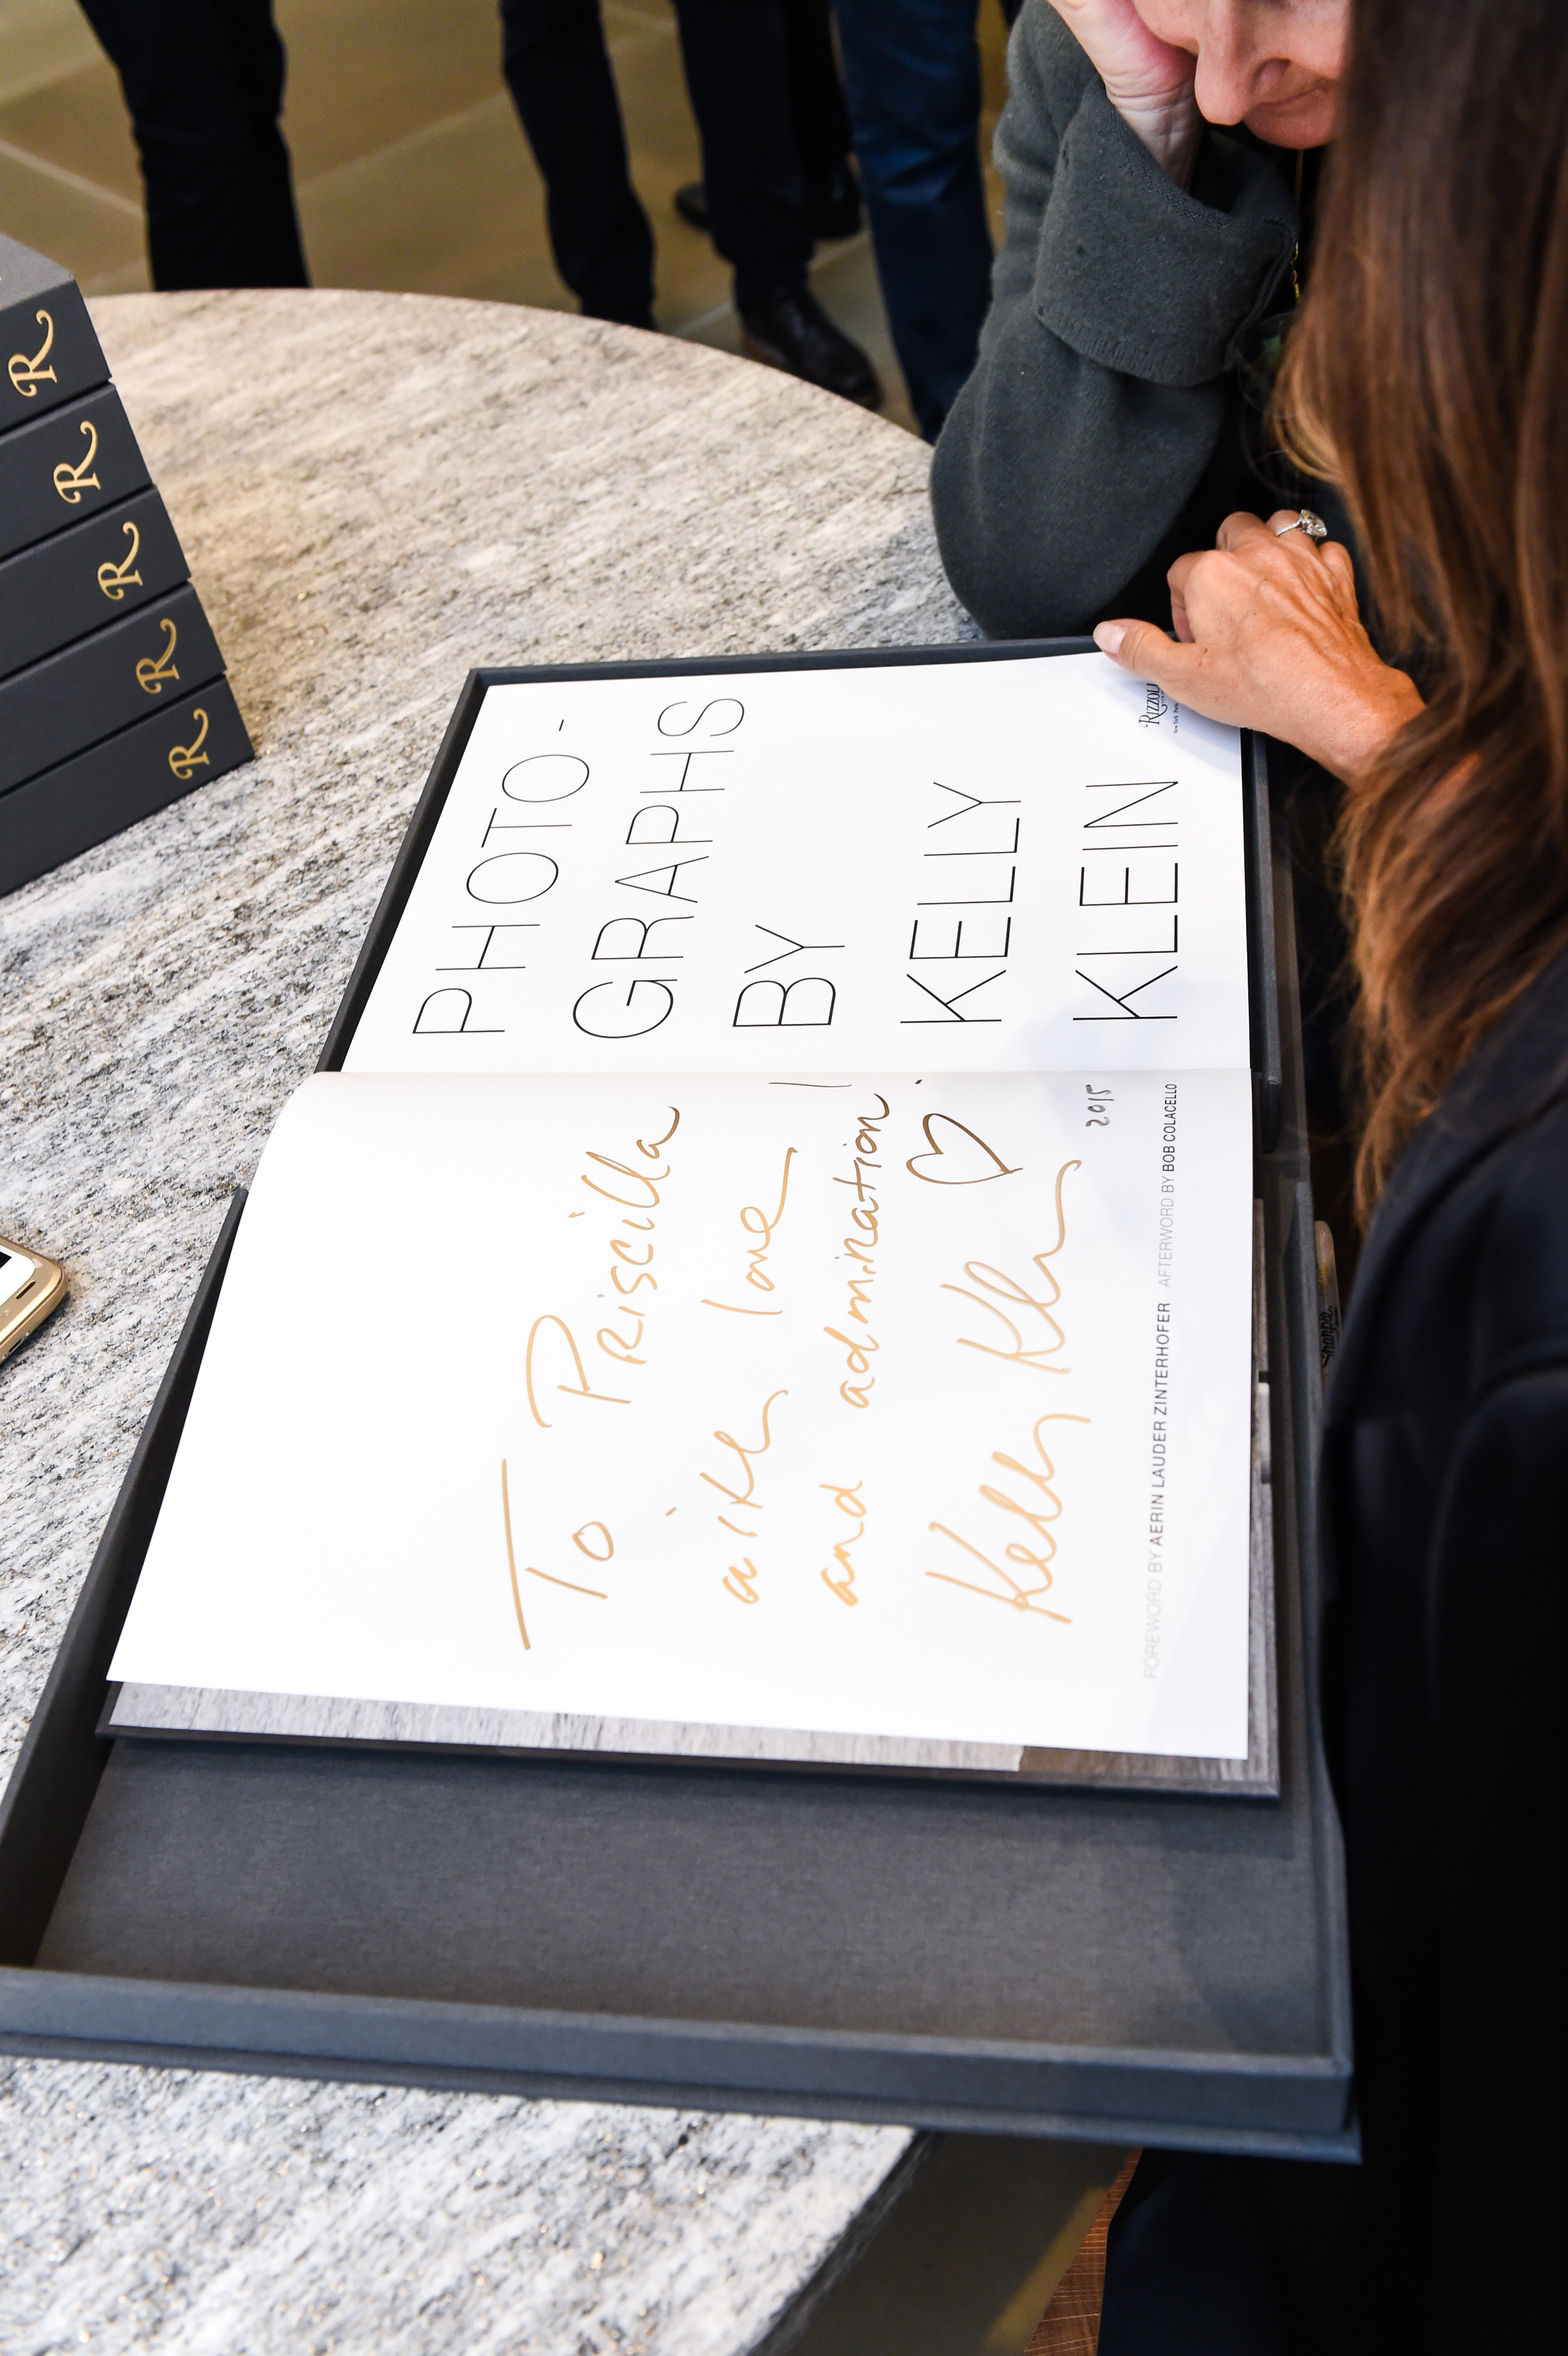 R
R
R
R
R
PHOTO-
GRAPHS
BY
KELLY
KLEIN
RIZZOLI
To Priscilla
with love
and admiration
Kelly Klein
2015
FOREWORD BY AERIN LAUDER ZINTERHOFER AFTERWORD BY BOB COLACELLO
Sharpie